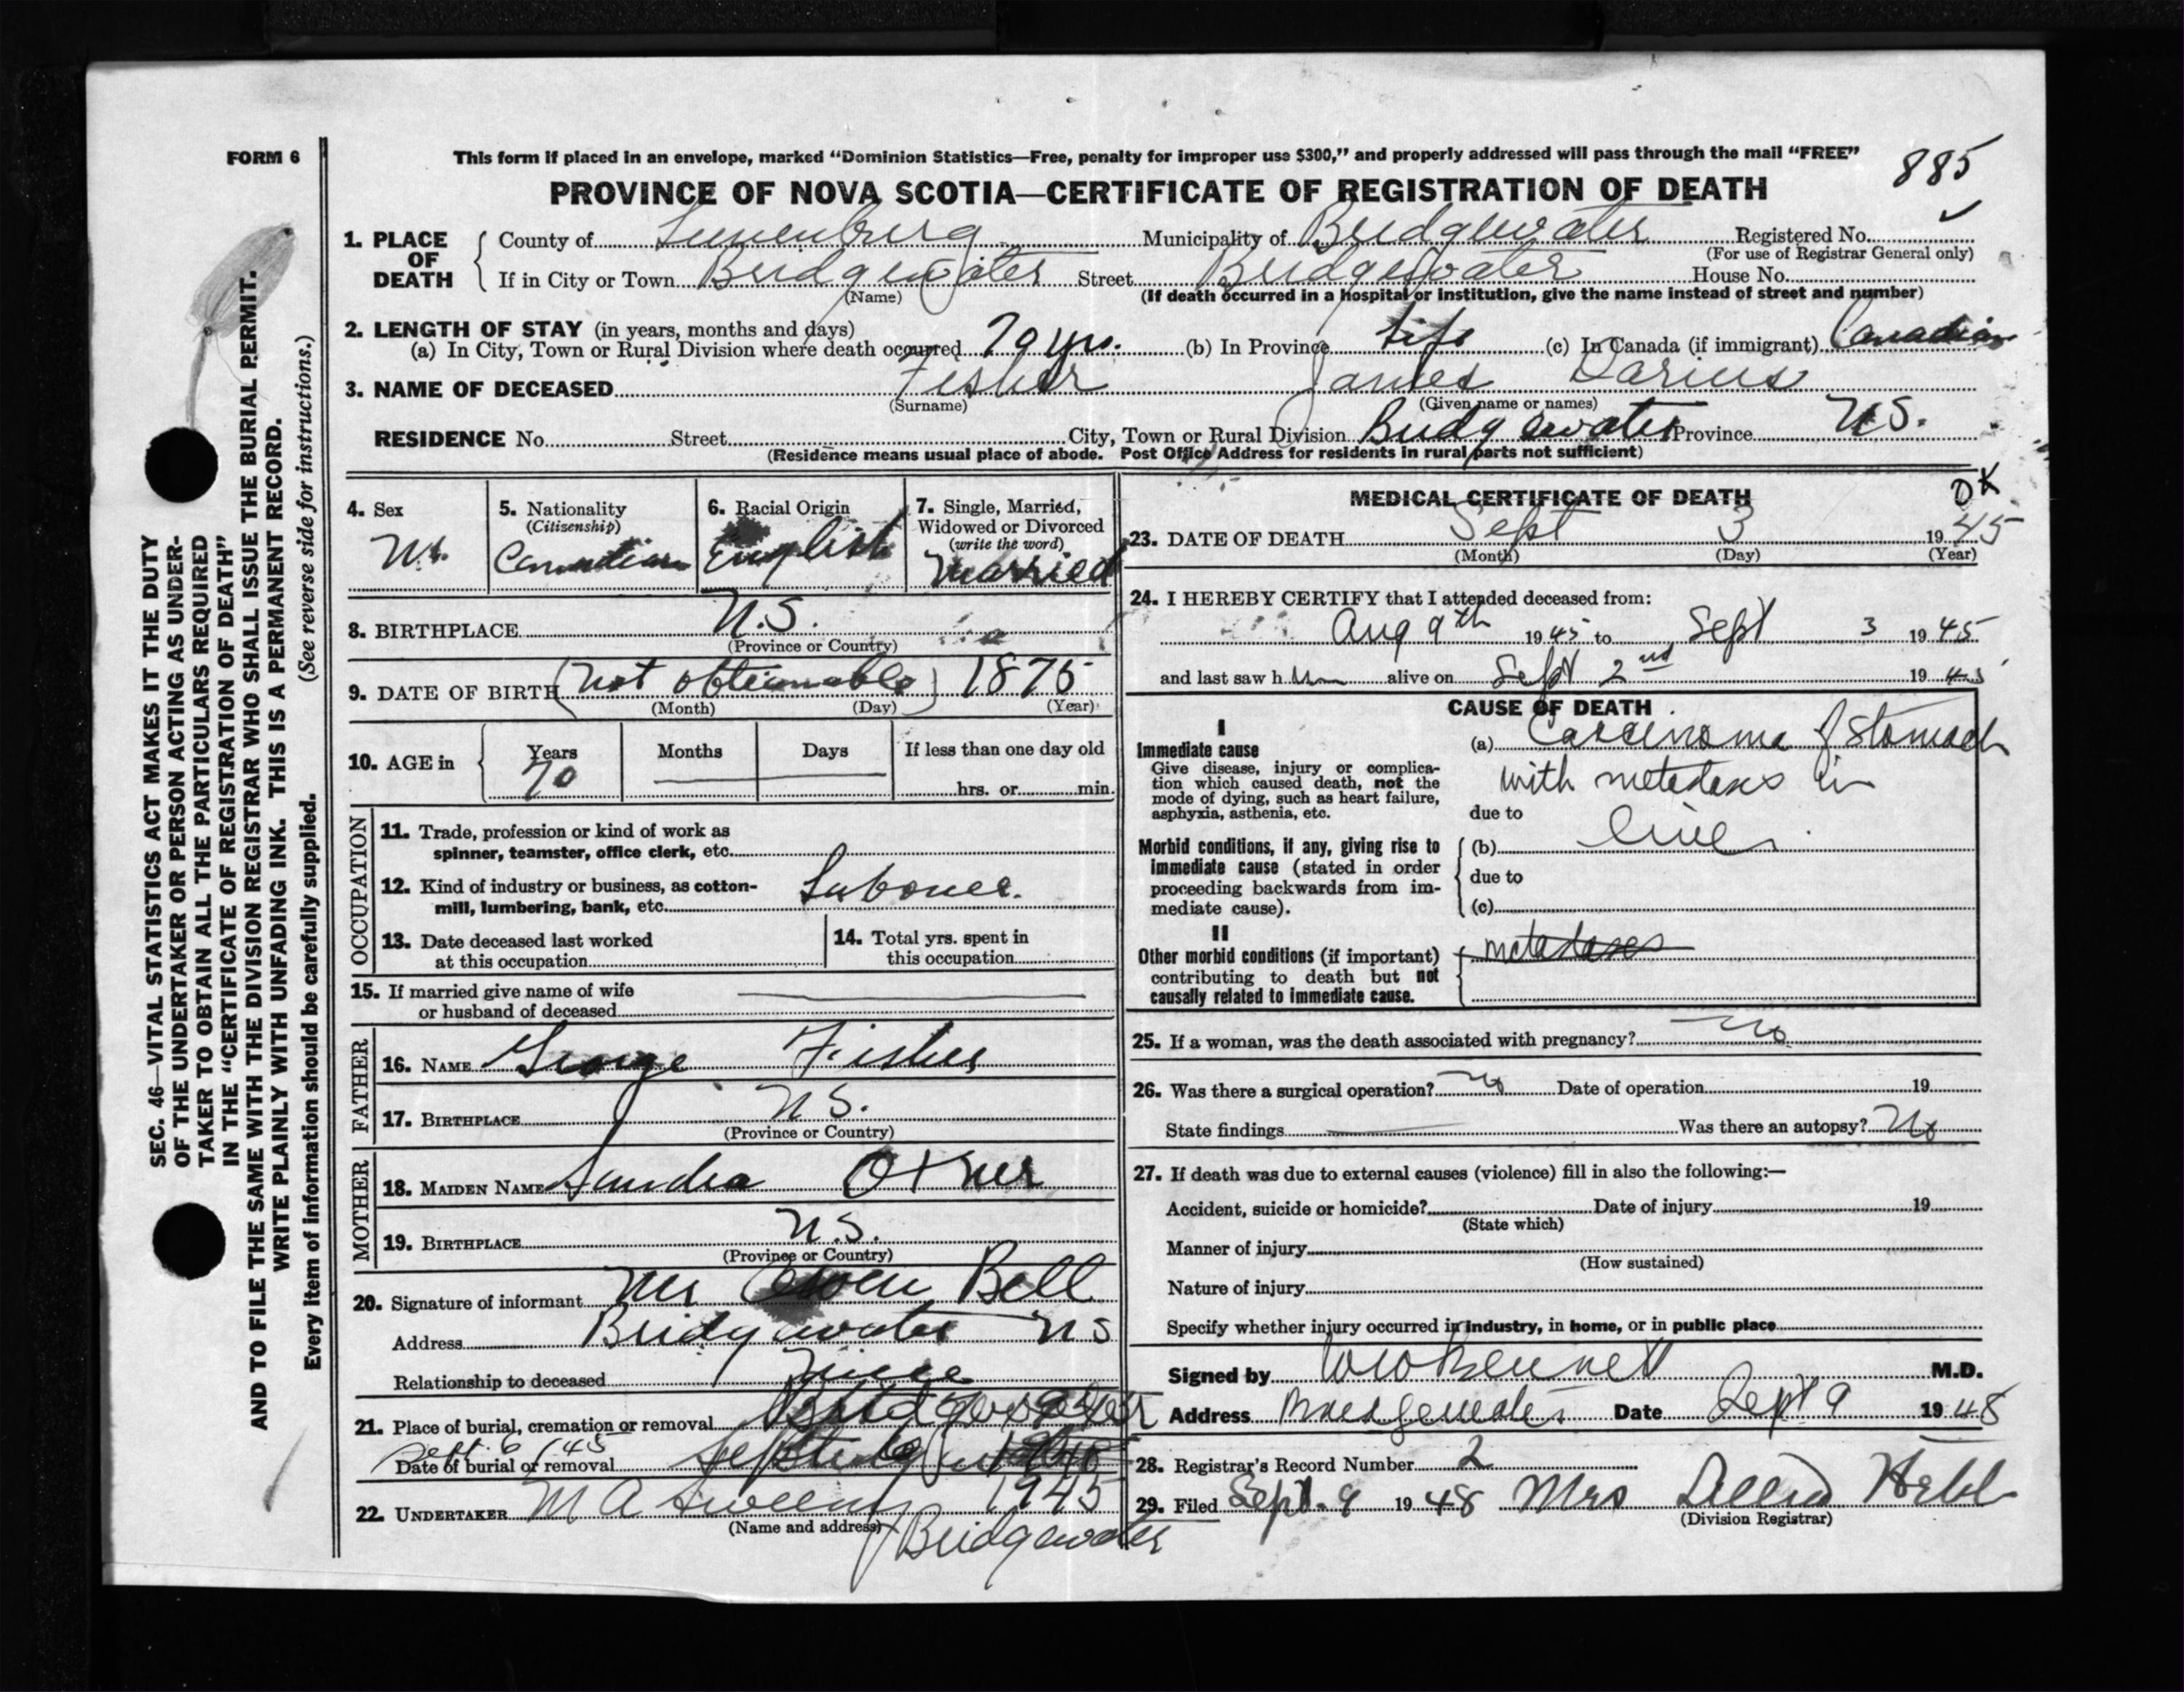 FORM 6
This form if placed in an envelope, marked “Dominion Statistics—Free, penalty for improper use $300,” and properly addressed will pass through the mail “FREE”
885
PROVINCE OF NOVA SCOTIA—CERTIFICATE OF REGISTRATION OF DEATH
1. PLACE OF DEATH
County of Lunenburg Municipality of Bridgewater Registered No.
(For use of Registrar General only)
If in City or Town Bridgewater Street Bridgewater House No.
(Name) (If death occurred in a hospital or institution, give the name instead of street and number)
2. LENGTH OF STAY (in years, months and days)
(a) In City, Town or Rural Division where death occurred 70 yrs. (b) In Province Life (c) In Canada (if immigrant) Canadian
3. NAME OF DECEASED Fisher James Darius
(Surname) (Given name or names)
RESIDENCE No. Street City, Town or Rural Division Bridgewater Province N.S.
(Residence means usual place of abode. Post Office Address for residents in rural parts not sufficient)
4. Sex M.
5. Nationality (Citizenship) Canadian
6. Racial Origin English
7. Single, Married, Widowed or Divorced (write the word) Married
8. BIRTHPLACE N.S.
(Province or Country)
9. DATE OF BIRTH (not obtainable) 1875
(Month) (Day) (Year)
10. AGE in Years 70 Months Days If less than one day old
hrs. or min.
OCCUPATION
11. Trade, profession or kind of work as
spinner, teamster, office clerk, etc.
12. Kind of industry or business, as cotton-
mill, lumbering, bank, etc. Labourer.
13. Date deceased last worked
at this occupation
14. Total yrs. spent in
this occupation
15. If married give name of wife
or husband of deceased
FATHER
16. NAME George Fisher
17. BIRTHPLACE N.S.
(Province or Country)
MOTHER
18. MAIDEN NAME
19. BIRTHPLACE N.S.
(Province or Country)
20. Signature of informant Mrs Owen Bell
Address Bridgewater NS
Relationship to deceased Niece
21. Place of burial, cremation or removal Bridgewater
Sept. 6 /45
Date of burial or removal
1945
22. UNDERTAKER M A Sweeny
(Name and address) Bridgewater
MEDICAL CERTIFICATE OF DEATH
OK
23. DATE OF DEATH Sept 3 1945
(Month) (Day) (Year)
24. I HEREBY CERTIFY that I attended deceased from:
Aug 9th 1945 to Sept 3 1945
and last saw him alive on Sept 2nd 1945
CAUSE OF DEATH
I
Immediate cause
Give disease, injury or complica-
tion which caused death, not the
mode of dying, such as heart failure,
asphyxia, asthenia, etc.
(a) Carcinoma of Stomach
with metastases in
due to
Morbid conditions, if any, giving rise to
immediate cause (stated in order
proceeding backwards from im-
mediate cause).
(b) liver
due to
(c)
II
Other morbid conditions (if important)
contributing to death but not
causally related to immediate cause.
metastases
25. If a woman, was the death associated with pregnancy? No
26. Was there a surgical operation? No Date of operation 19
State findings Was there an autopsy? No
27. If death was due to external causes (violence) fill in also the following:—
Accident, suicide or homicide? Date of injury 19
(State which)
Manner of injury
(How sustained)
Nature of injury
Specify whether injury occurred in industry, in home, or in public place
Signed by M.D.
Address Date Sept 9 1948
28. Registrar's Record Number 2
29. Filed Sept. 9 1948 Mrs Hebb
(Division Registrar)
SEC. 46—VITAL STATISTICS ACT MAKES IT THE DUTY
OF THE UNDERTAKER OR PERSON ACTING AS UNDER-
TAKER TO OBTAIN ALL THE PARTICULARS REQUIRED
IN THE “CERTIFICATE OF REGISTRATION OF DEATH”
AND TO FILE THE SAME WITH THE DIVISION REGISTRAR WHO SHALL ISSUE THE BURIAL PERMIT.
WRITE PLAINLY WITH UNFADING INK. THIS IS A PERMANENT RECORD.
Every item of information should be carefully supplied. (See reverse side for instructions.)